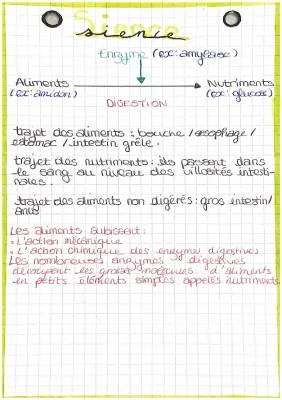 Sience
sience
Enzyme (ex: amylase)
Aliments → Nutriments
(ex: amidon) (ex: glucose)
DIGESTION
trajet des aliments : bouche / œsophage /
estomac / intestin grêle.
trajet des nutriments : ils passent dans
le sang au niveau des villosités intesti-
nales.
trajet des aliments non digérés : gros intestin/
anus
Les aliments subissent :
• L'action mécanique
• L'action chimique des enzymes digestives
Les nombreuses enzymes digestives
découpent les grosses molécules d'aliments
en petits éléments simples appelés nutriments